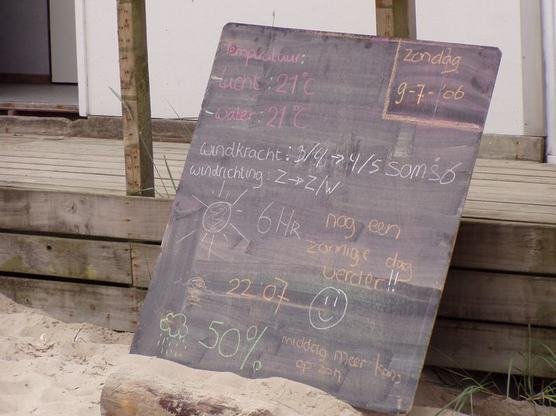 Temperatuur:
zondag
9-7-'06
-Lucht: 21°C
-water: 21°C
windkracht: 3/4 → 4/5 soms 6
windrichting: Z → Z/W
6 HR
nog een
zonnige dag
verder!!
22:07
50%
middag meer kans
op zon